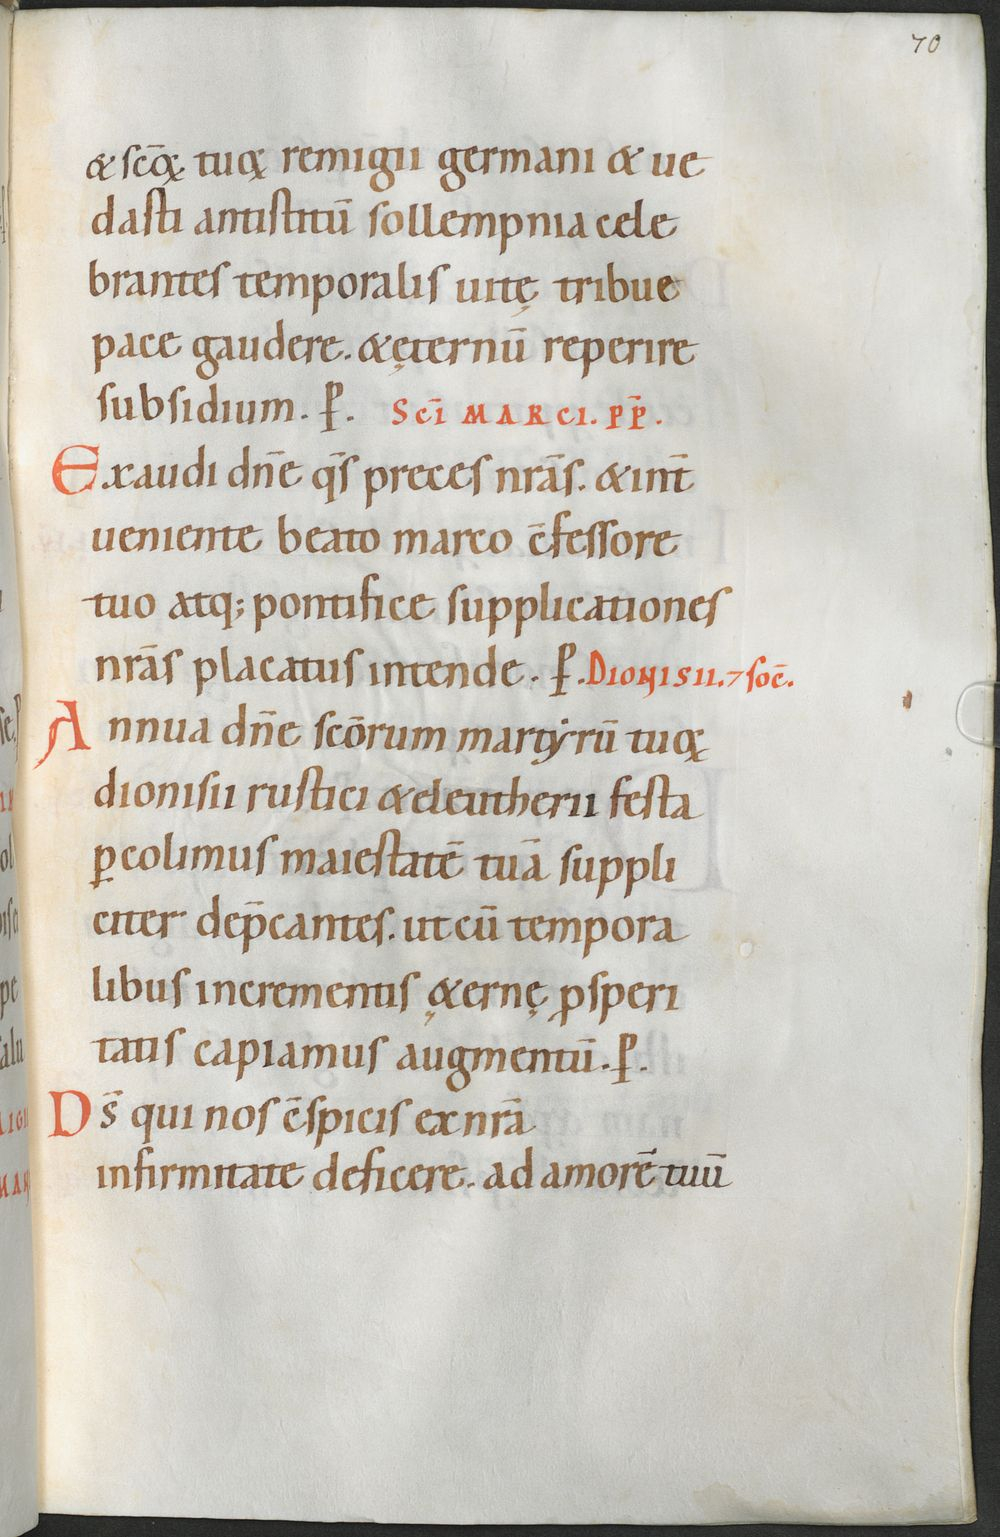 70
& sc̄oꝝ tuoꝝ remigii germani & ue
dasti antistitū sollempnia cele
brantes temporalis uitę tribue
pace gaudere. & ęternū reperire
subsidium. P̄.  SC̄I MARCI. PP̄.
Exaudi dn̄e qs̄ preces nrās. & int̄
ueniente beato marco c̄fessore
tuo atq; pontifice supplicationes
nrās placatus intende. P̄. DIONISII. ⁊ soc̄.
Annua dn̄e scōrum martyrū tuoꝝ
dionisii rustici & eleutherii festa
ꝑcolimus maiestatē tuā suppli
citer dep̄cantes. ut cū tempora
libus incrementis ę&ernę ꝓsperi
tatis capiamus augmentū. P̄.
Ds̄ qui nos c̄spicis ex nrā
infirmitate deficere. ad amorē tuū